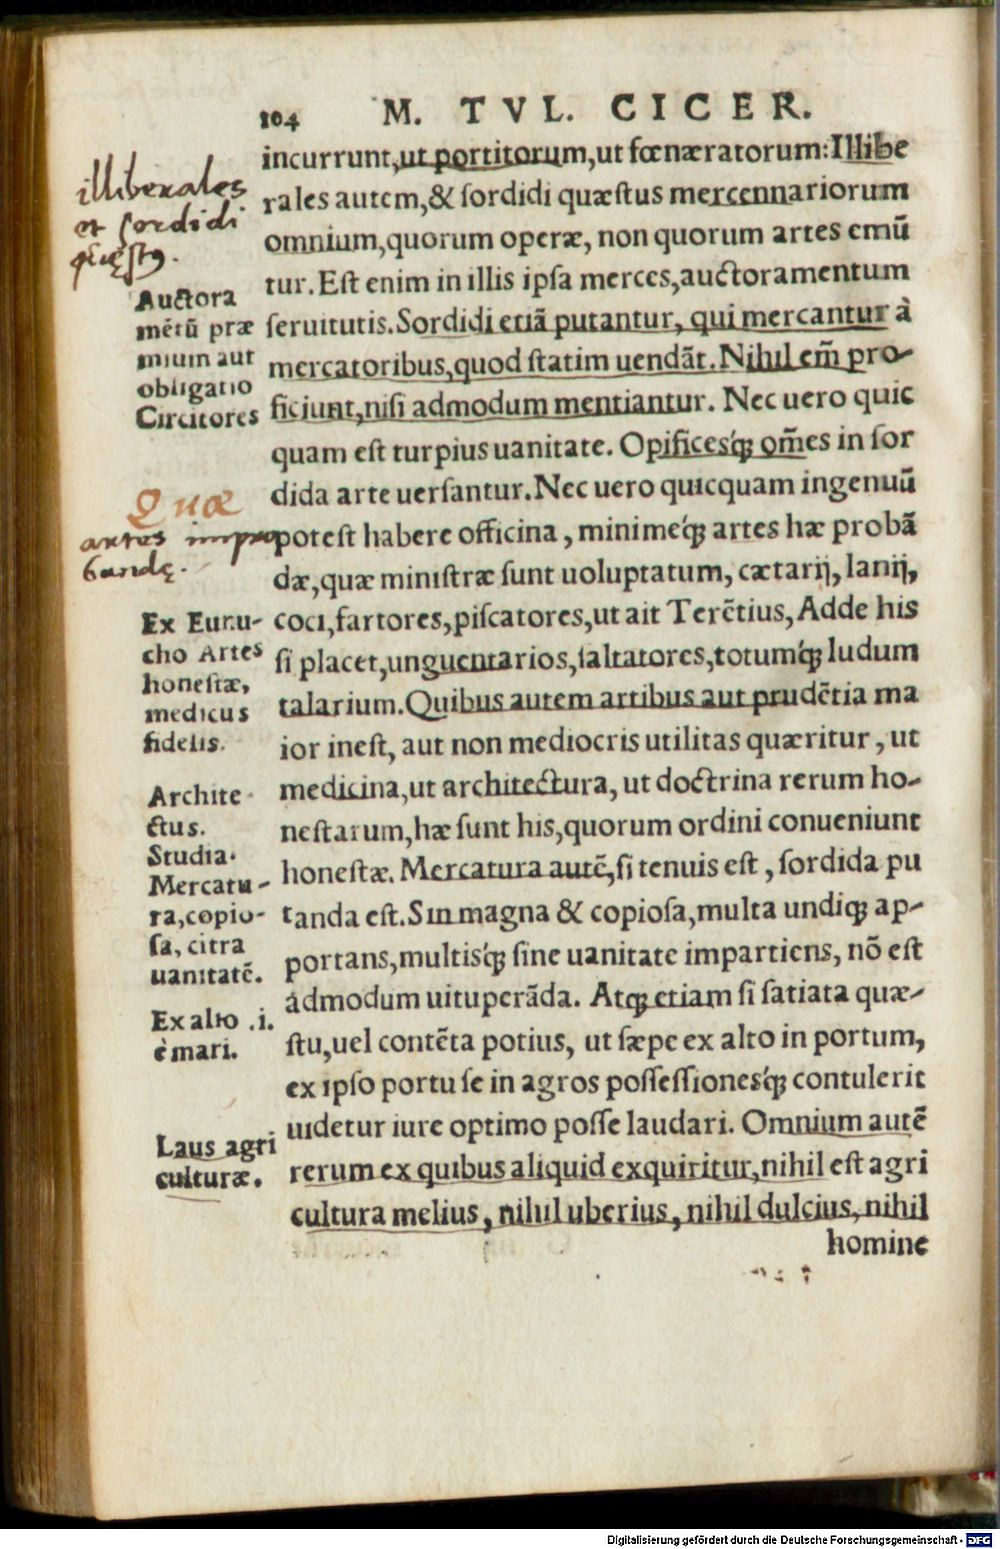 104 M. TVL. CICER.
incurrunt,ut portitorum,ut fœnæratorum:Illibe
rales autem,& ſordidi quæſtus mercennariorum
omnium,quorum operæ, non quorum artes emũ
tur. Eſt enim in illis ipſa merces,auctoramentum
ſeruitutis.Sordidi etiã putantur, qui mercantur à
mercatoribus,quod ſtatim uendãt. Nihil em̃ pro-
ficiunt,niſi admodum mentiantur. Nec uero quic
quam eſt turpius uanitate. Opificesq́ꝫ om̃es in ſor
dida arte uerſantur. Nec uero quicquam ingenuũ
poteſt habere officina, minimeq́ꝫ artes hæ probã
dæ,quæ miniſtræ ſunt uoluptatum, cætarij, lanij,
coci,fartores,piſcatores,ut ait Terẽtius, Adde his
ſi placet,unguentarios,ſaltatores,totumq́ꝫ ludum
talarium.Quibus autem artibus aut prudẽtia ma
ior ineſt, aut non mediocris utilitas quæritur, ut
medicina,ut architectura, ut doctrina rerum ho-
neſtarum,hæ ſunt his,quorum ordini conueniunt
honeſtæ. Mercatura autẽ,ſi tenuis eſt, ſordida pu
tanda eſt. Sin magna & copioſa,multa undiqꝫ ap-
portans,multisq́ꝫ ſine uanitate impartiens, nõ eſt
admodum uituperãda. Atqꝫ etiam ſi ſatiata quæ-
ſtu,uel contẽta potius, ut ſæpe ex alto in portum,
ex ipſo portu ſe in agros poſſeſſionesq́ꝫ contulerit
uidetur iure optimo poſſe laudari. Omnium autẽ
rerum ex quibus aliquid exquiritur,nihil eſt agri
cultura melius, nihil uberius, nihil dulcius, nihil
homine
illiberales
et ſordidi
quęſtꝰ.
Auctora
mẽtũ præ
mium aut
obligatio
Circitores
Quæ
artes impro
bandę.
Ex Eunu-
cho Artes
honeſtæ,
medicus
fidelis.
Archite
ctus.
Studia.
Mercatu-
ra,copio-
ſa, citra
uanitatẽ.
Ex alto .i.
è mari.
Laus agri
culturæ.
Digitalisierung gefördert durch die Deutsche Forschungsgemeinschaft - DFG